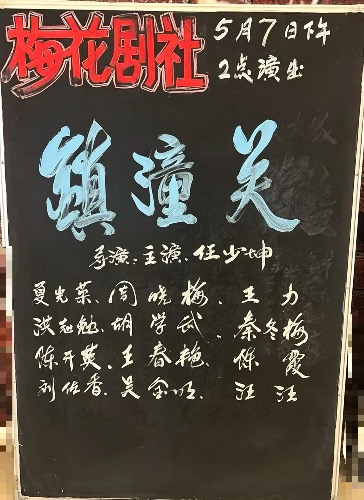 梅花剧社
5月7日下午
2点演出
鎮潼关
导演:主演、任少坤
夏光荣、周晓梅、王力
洪志勉、胡学武、秦冬梅
陈开英、王春艳、陈霞
刘佐香、吴金明、汪汪